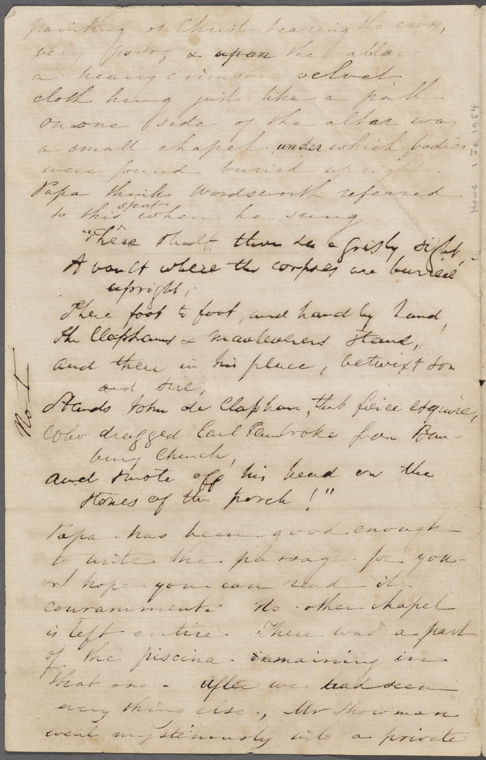 painting of Christ bearing the cross,
very poor, & upon the altar
a heavy crimson velvet
cloth hung just like a pall
On one side of the altar was
a small chapel under which bodies
were found buried upright.
Papa thinks Wordsworth referred
to this spot when he sung
"There shalt thou see a grisly sight,
A vault where the corpses are buried
upright;
There foot to foot, and hand by hand,
The Claphams & Mauleverers stand,
and there in his place, betwixt son
and sire,
Stands John de Clapham, that fierce esquire,
Who dragged Earl Pembroke from Ban-
bury Church,
and smote off his head on the
stones of the porch!"
Papa has been good enough
to write the passage for you
& I hope you can read it
couramment. No other chapel
is left entire. There was a part
of the piscina remaining in
that one. After we had seen
every thing else, Mr Showman
went mysteriously into a private